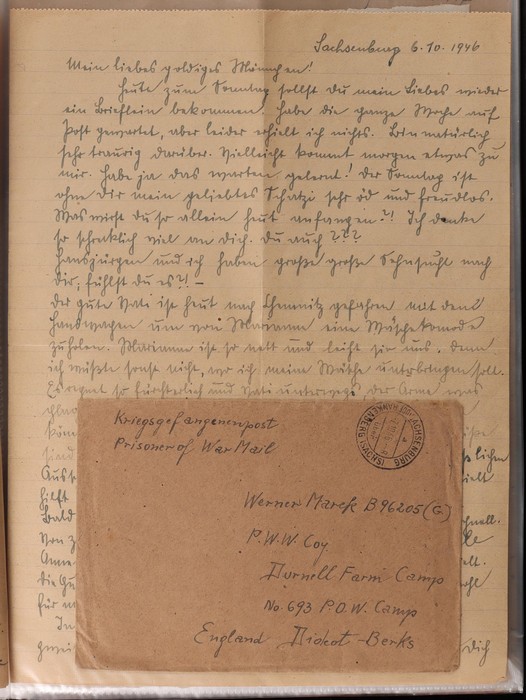 Sachsenburg 6.10.1946
Mein liebes goldiges Männchen!
Heute zum Sonntag sollst du mein Liebes wieder
ein Brieflein bekommen, habe die ganze Woche auf
Post gewartet, aber leider erhielt ich nichts. Bin natürlich
sehr traurig darüber. Vielleicht kommt morgen etwas zu
mir. Habe ja das warten gelernt! Der Sonntag ist
ohne Dir mein geliebtes Schatzi sehr öd und freudlos.
Was wirst du so allein heut anfangen?! Ich denke
so schrecklich viel an dich. Du auch???
Hansjürgen und ich haben große große Sehnsucht nach
dir, fühlst du es?! –
Der gute Vati ist heut nach Chemnitz gefahren mit dem
Handwagen um von Mariann eine Wäschekomode
zuholen. Mariann ist so nett und leiht sie uns. Denn
ich wüßte sonst nicht, wo ich meine Wäsche unterbringen soll.
Es regnet so fürchterlich und Vati unterwegs, der Arme
sind
hilft
bald
schnell.
von
Anne
die
für
In
dich
Kriegsgefangenenpost
Prisoner of War Mail
SACHSENBURG
Werner Marek B 96205 (G.)
P.W.W. Coy.
Durnell Farm Camp
No. 693 P.O.W. Camp
England Didcot-Berks